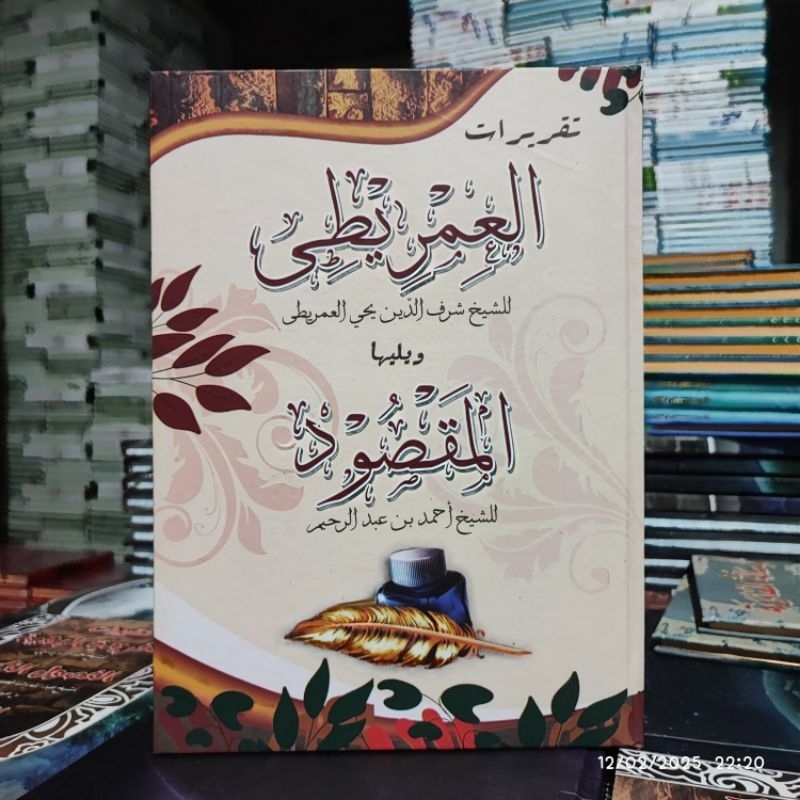 تقريرات
العِمْرِيْطِى
للشيخ شرف الدّين يحي العمريطى
ويليها
المَقْصُوْد
للشيخ أحمد بن عبد الرحيم
12/02/2025 22:20